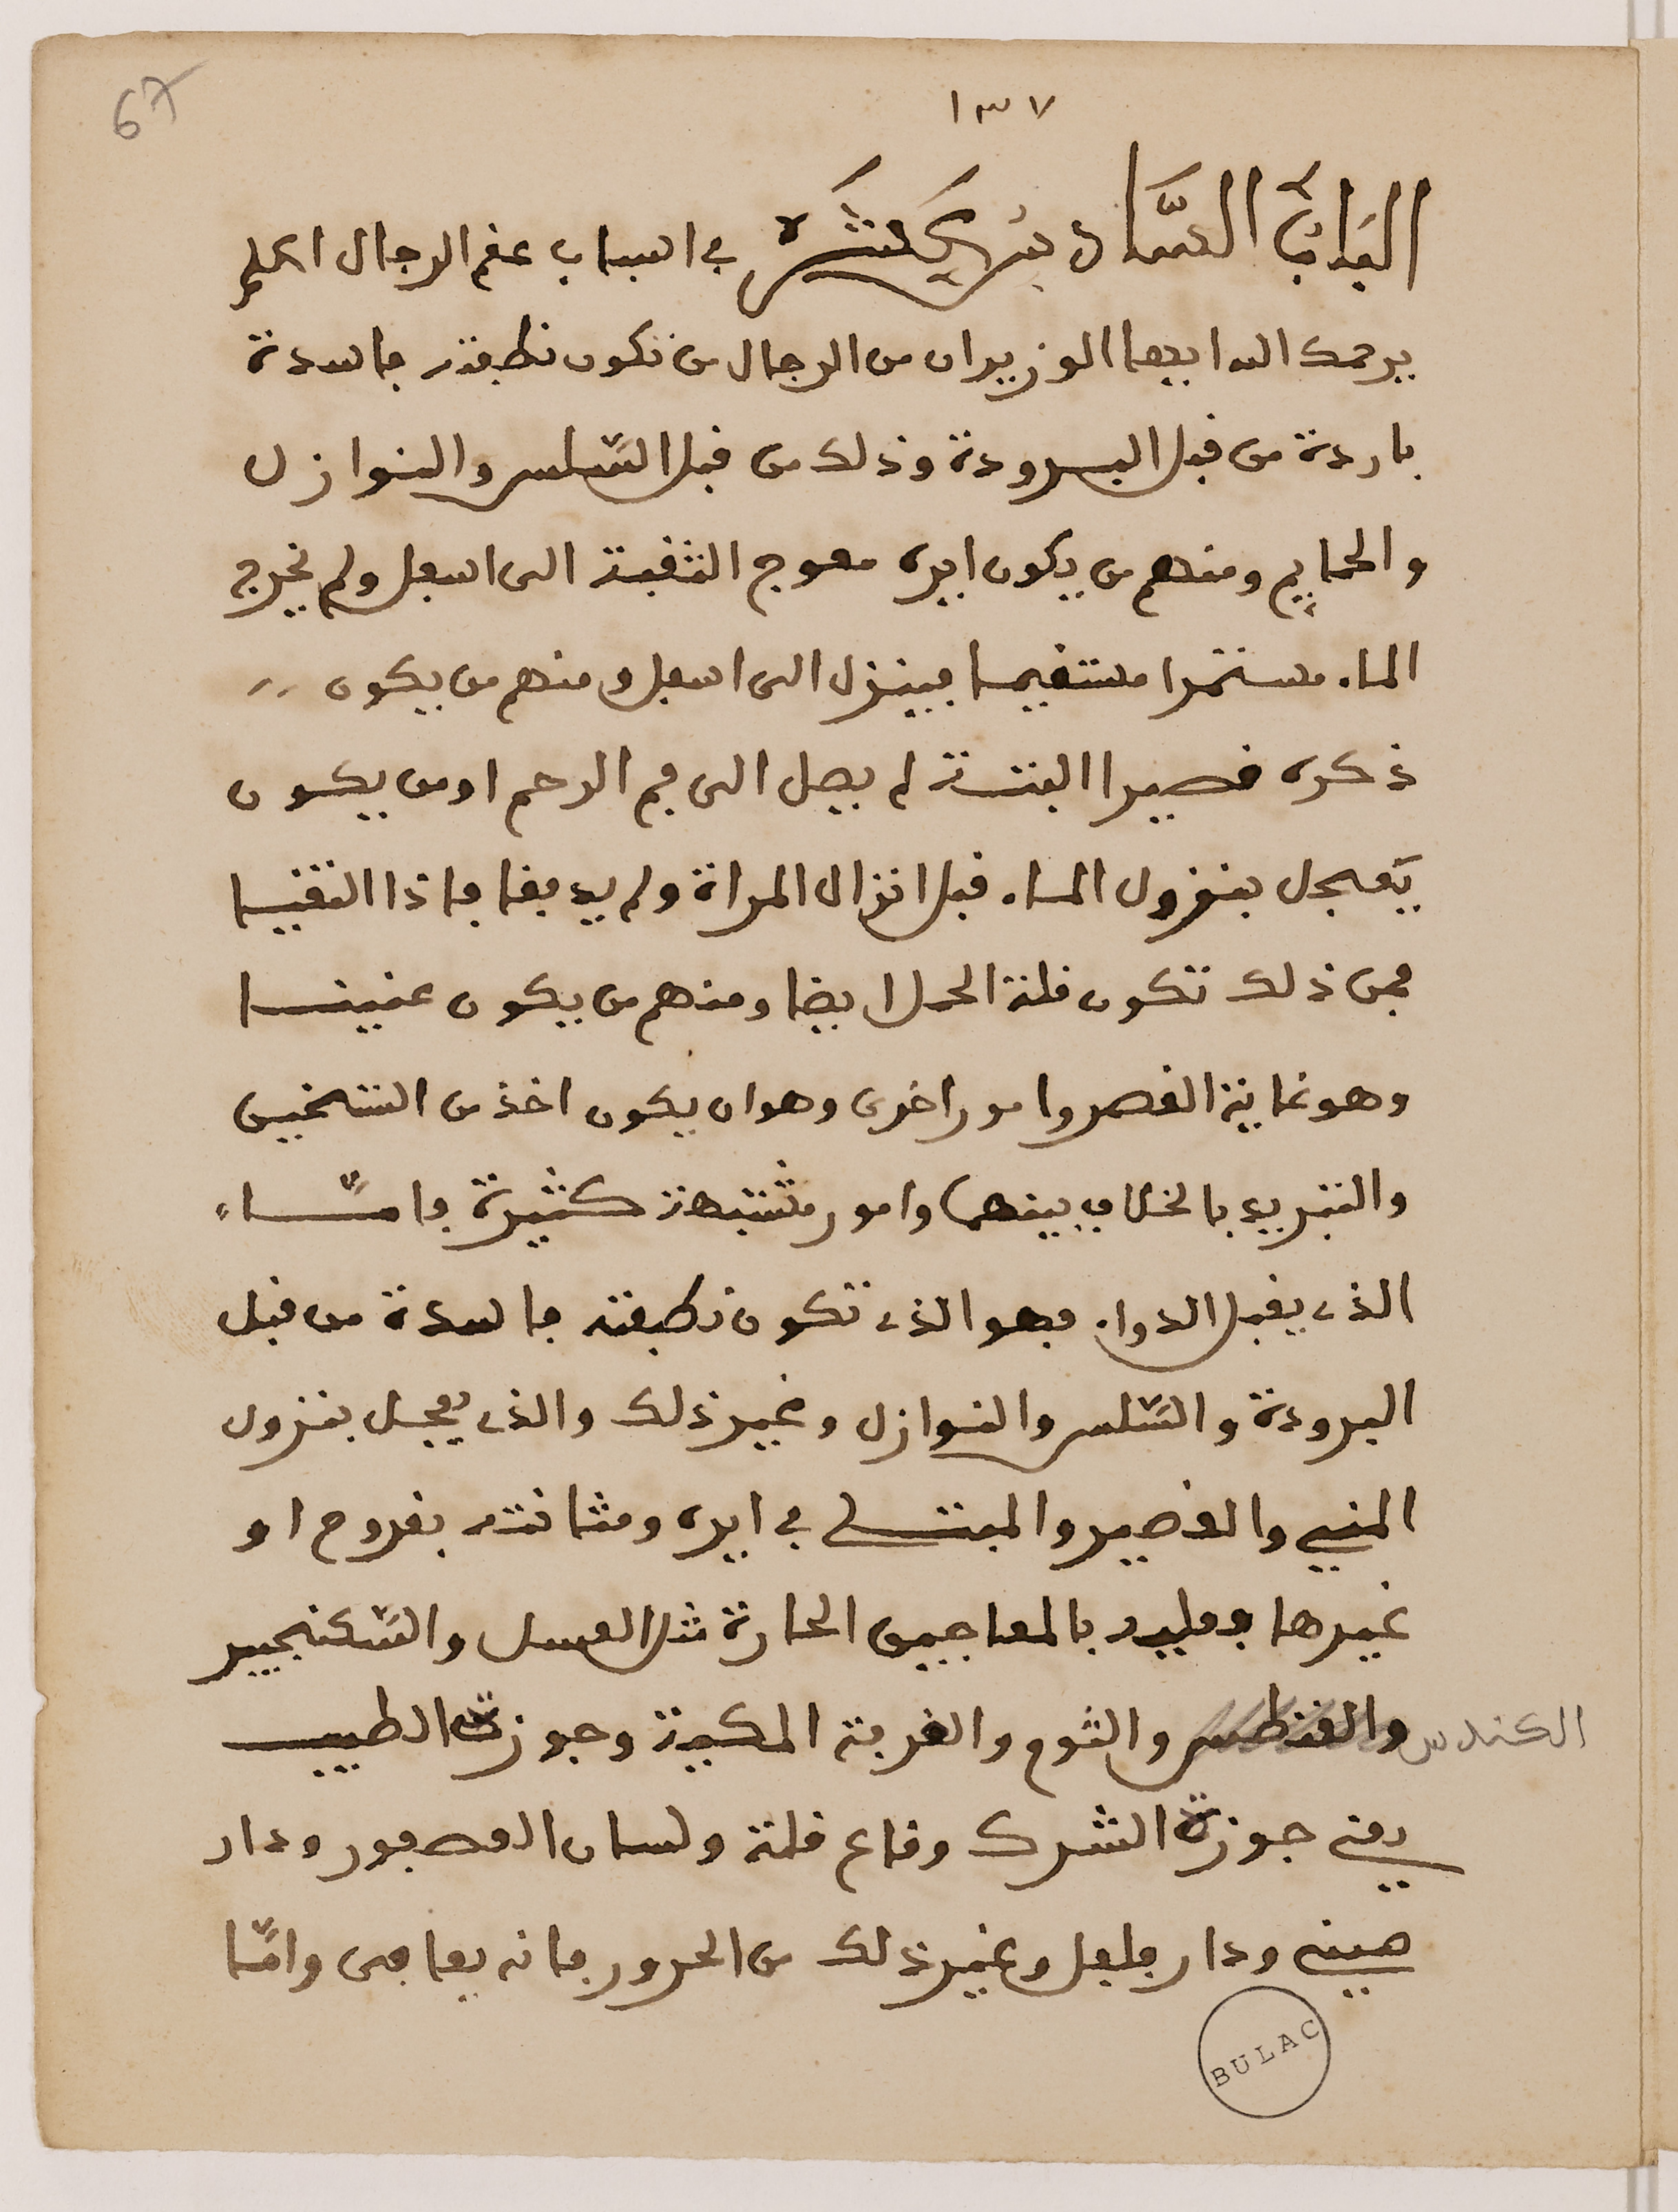 67
١٣٧
الباب السادس عشر في اسباب عقم الرجال اعلم
يرحمك الله ايها الوزير ان من الرجال من تكون نطفته فاسدة
باردة من قبل البرودة وذلك من قبل السّلس والنوازل
والحمايم ومنهم من يكون ايره معوج الثقبة الى اسفل ولم يخرج
الماء مستمرا مستقيما فينزل الى اسفل ومنهم من يكون
ذكره قصيرا البتة لم يصل الى فم الرحم او من يكون
يَعجل بنزول الماء قبل انزال المراة ولم يديفا فاذا التقيا
فمن ذلك تكون قلة الحمل ايضا ومنهم من يكون عنينا
وهو نهاية القصر وامور اخرى وهو ان يكون اخذ من التسخين
والتبريد بالخلاف بينهما وامور مشتبهة كثيرة فامّا
الذي يقبل الدواء فهو الذي تكون نطفته فاسدة من قبل
البرودة والسّلس والنوازل وغير ذلك والذي يعجل بنزول
المني والقصير والمبتلى في ايره ومثانته بقروح او
غيرها فعليه بالمعاجين الحارة مثل العسل والسّكنجبير
والقنطس والثوم والقرفة المكية وجوزة الطيب
الكندس
يعني جوزة الشرك وقاع قلة ولسان العصفور ودار
صيني ودار فلفل وغير ذلك من الحرور فانه يعافى وامّا
BULAC